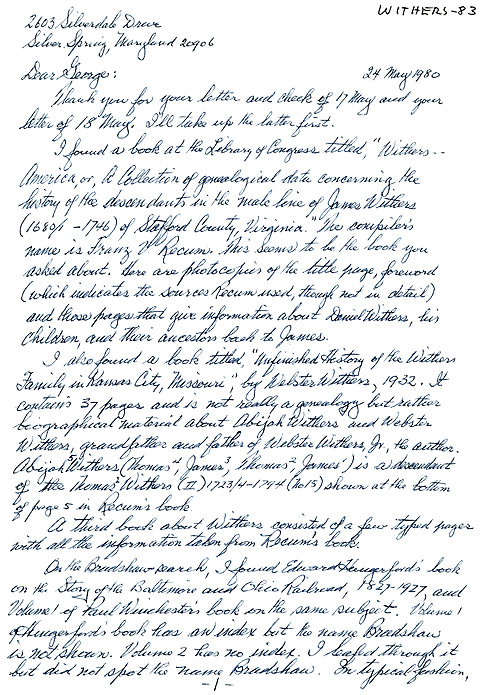 WITHERS-83
2603 Silverdale Drive
Silver Spring, Maryland 20906
Dear George: 24 May 1980
Thank you for your letter and check of 17 May and your
letter of 18 May. I'll take up the latter first.
I found a book at the Library of Congress titled, "Withers--
America, or, A Collection of genealogical data concerning the
history of the descendants in the male line of James Withers
(1680/1-1746) of Stafford County, Virginia." The compiler's
name is Franz V. Recum. This seems to be the book you
asked about. Here are photocopies of the title page, foreword
(which indicates the sources Recum used, though not in detail)
and those pages that give information about Daniel Withers, his
children, and their ancestors back to James.
I also found a book titled, "Unfinished History of the Withers
Family in Kansas City, Missouri", by Webster Withers, 1932. It
contains 37 pages and is not really a genealogy but rather
biographical material about Abijah Withers and Webster
Withers, grandfather and father of Webster Withers, Jr., the author.
Abijah5 Withers (Thomas4, James3, Thomas2, James1) is a descendant
of the Thomas2 Withers (II) 1723/4-1794 (No 15) shown at the bottom
of page 5 in Recum's book.
A third book about Withers consisted of a few typed pages
with all the information taken from Recum's book.
On the Bradshaw search, I found Edward Hungerford's book
on the Story of the Baltimore and Ohio Railroad, 1827-1927, and
Volume 1 of Paul Winchester's book on the same subject. Volume 1
of Hungerford's book has an index but the name Bradshaw
is not shown. Volume 2 has no index. I leafed through it
but did not spot the name Bradshaw. In typical fashion,
-1-